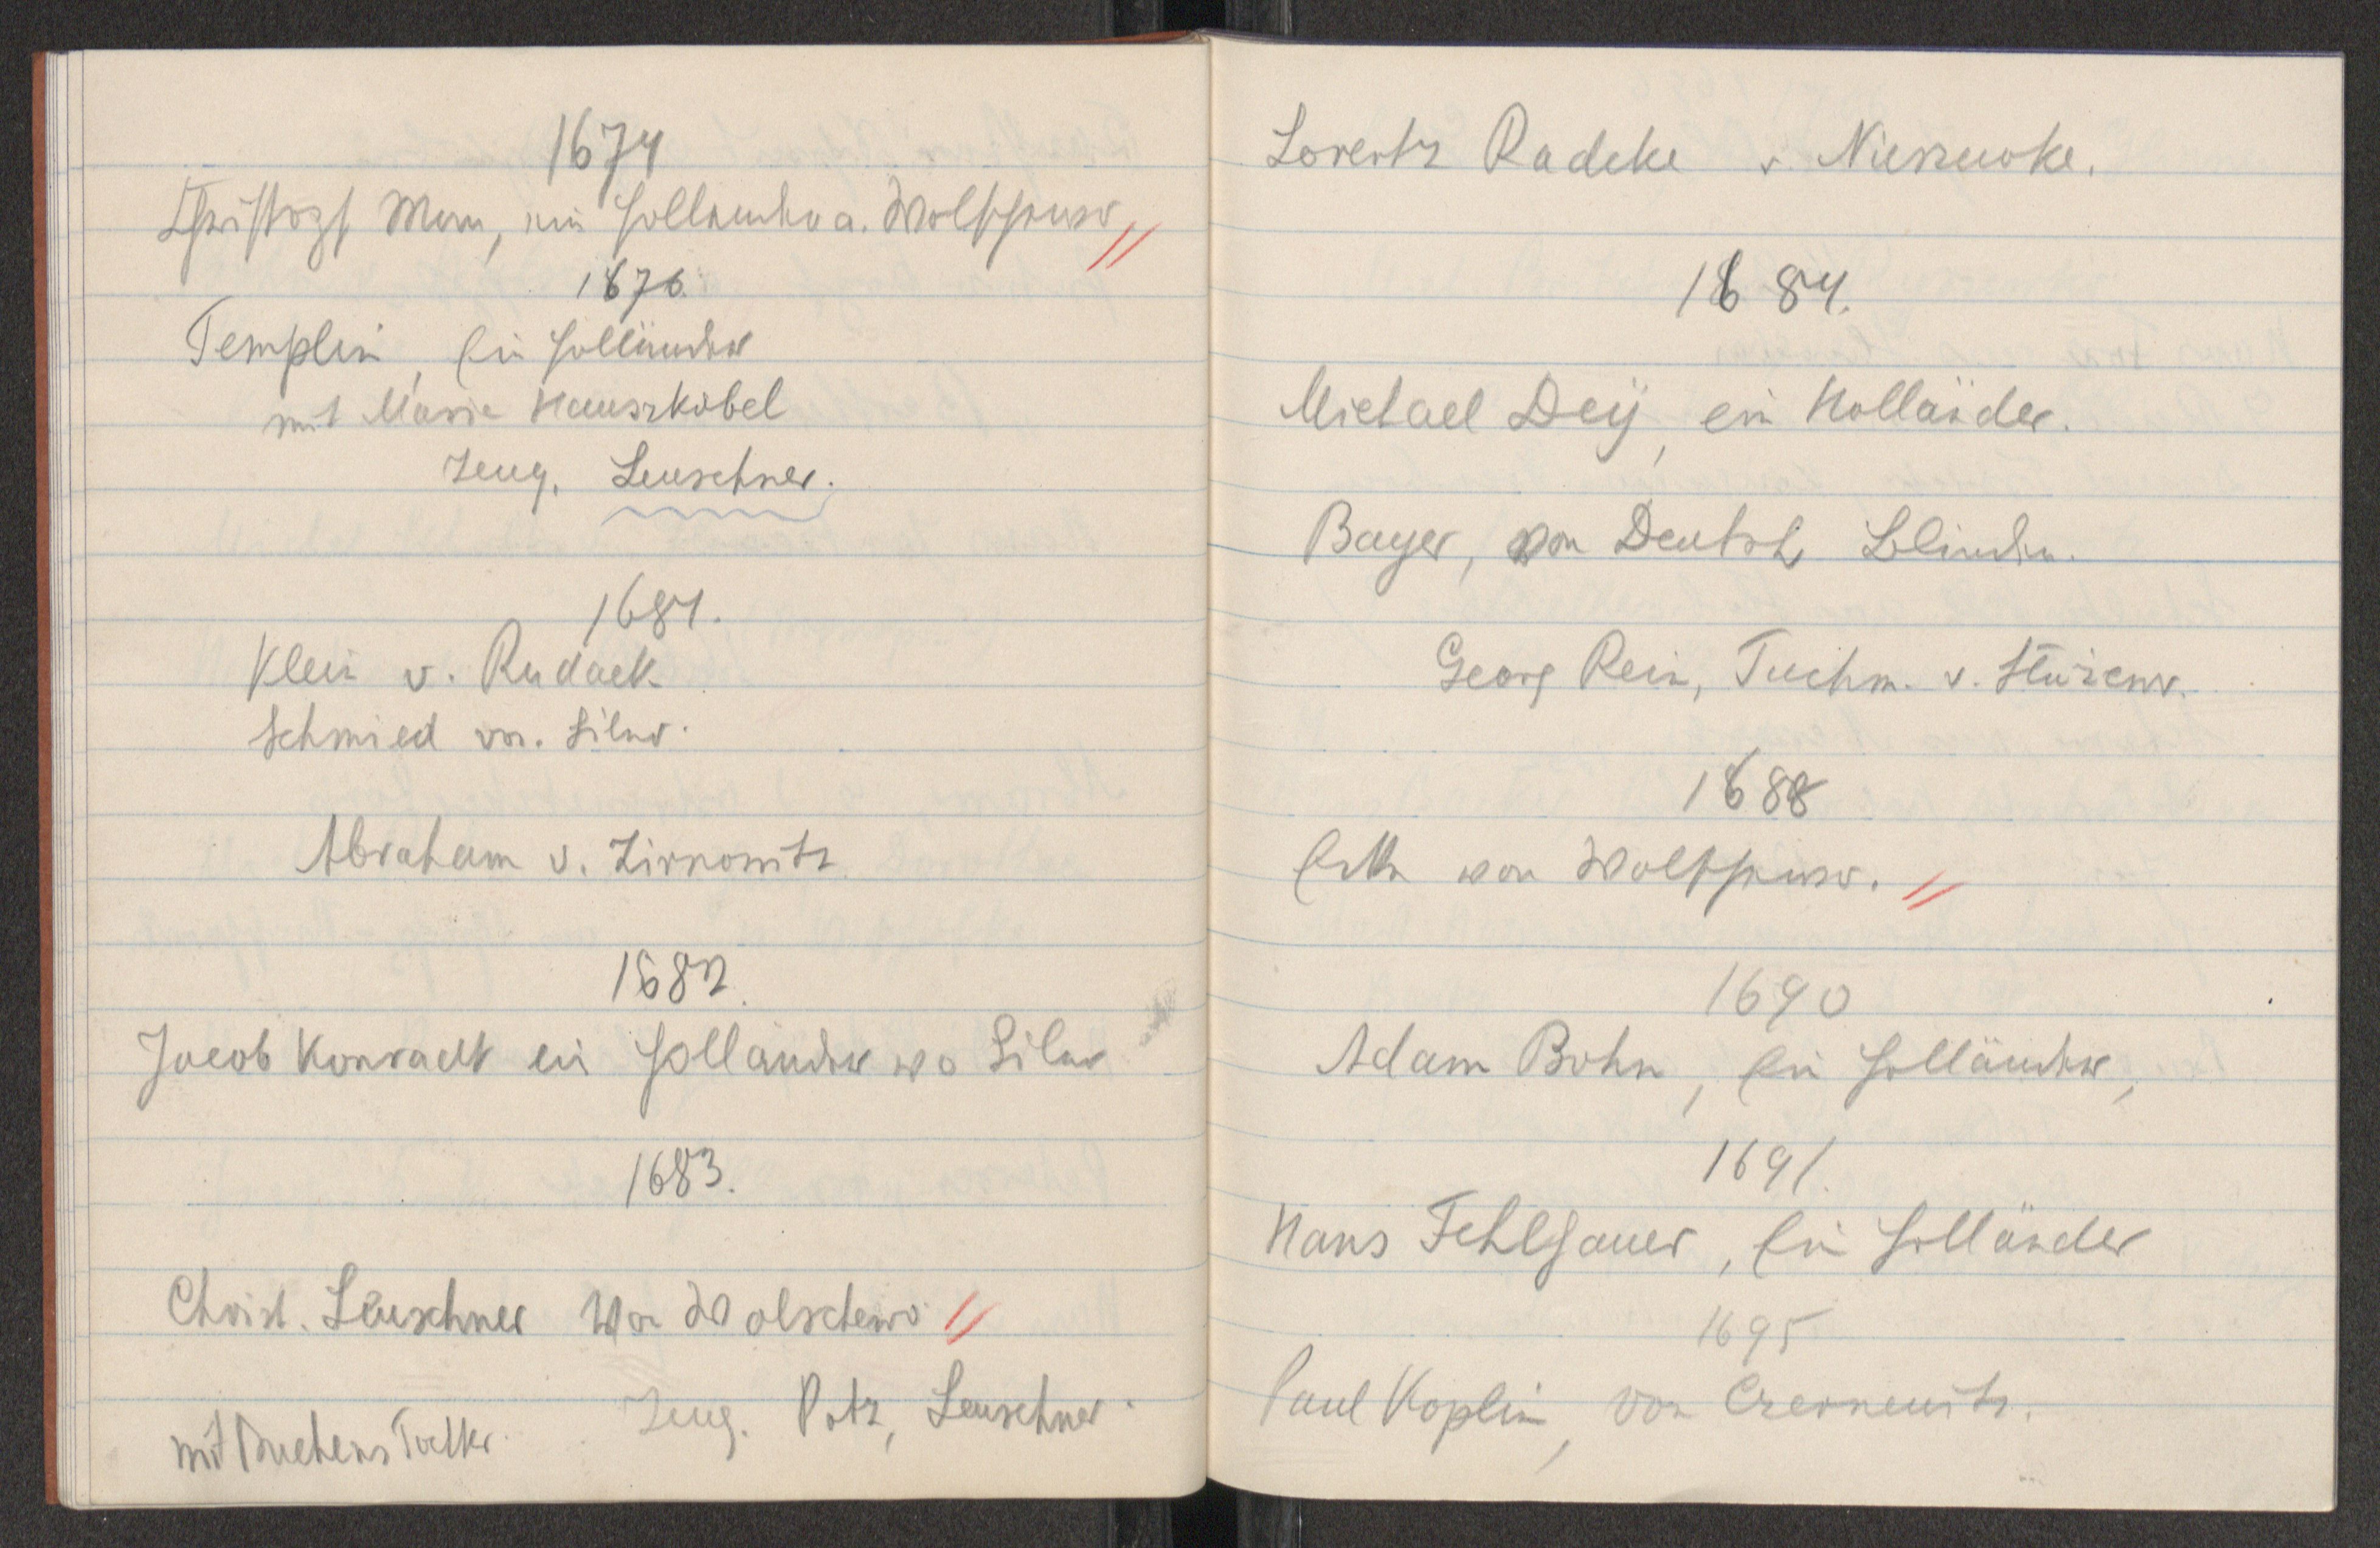 1674
Christoph Mom, ein Holländer a. Wolfshauer
1676.
Templin, ein Holländer
mit Marie Hauszkobel
Zeug. Leuschner.
1681.
Klein v. Rudack
Schmied von. Silno.
Abraham v. Zirnowitz
1682.
Jacob Konradt ein Holländer vo Silno
1683.
Christ. Leuschner Von Wolschewo
Zeug. Potz, Leuschner.
mit Tochter.
Lorentz Radcke v. Nieszewke.
1684.
Michael Deÿ, ein Holländer.
Bayer, von Deutsch
Georg Rein, Tuchm. v. Stuzew.
1688
von
1690
Adam Bohn, ein Holländer,
1691.
Hans Fehlhauer, ein Holländer
1695
Paul Koplin, von Czernewitz.